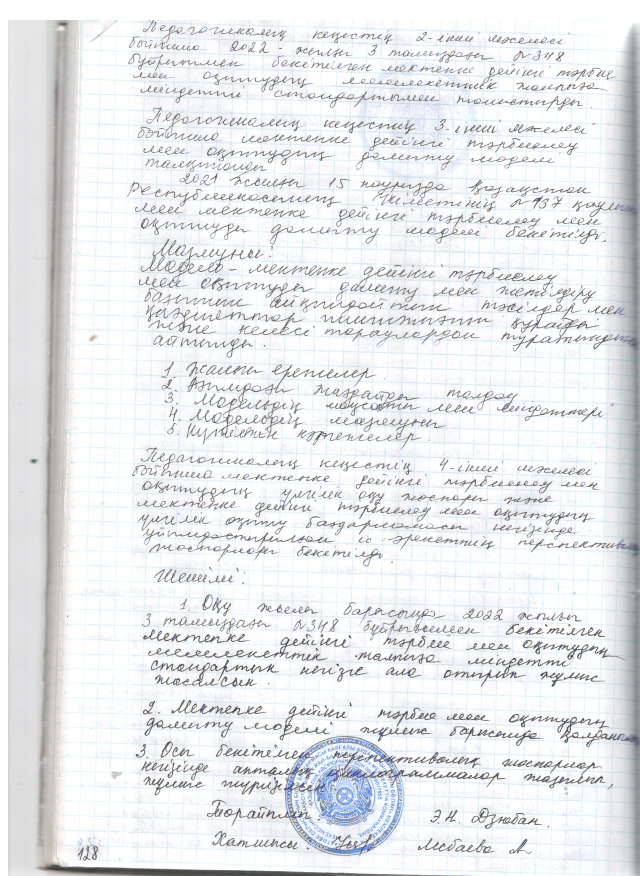 Педагогикалық кеңестің 2-інші мәселесі
бойынша 2022 - жылғы 3 тамыздағы №348
бұйрығымен бекітілген мектепке дейінгі тәрбие
мен оқытудың мемлекеттік жалпыға
міндетті стандартымен таныстырды.
Педагогикалық кеңестің 3-інші мәселесі
бойынша мектепке дейінгі тәрбиелеу
мен оқытудың дамыту моделі
талқыланды
2021 жылғы 15 наурызда Қазақстан
Республикасының Үкіметінің №137 қаулысы
мен мектепке дейінгі тәрбиелеу мен
оқытуды дамыту моделі бекітілді.
Мазмұны:
Модель - мектепке дейінгі тәрбиелеу
мен оқытуды дамыту мен жетілдіру
бағытын айқындайтын тәсілдер мен
қағидаттар жиынтығын құрайды
және келесі тараулардан тұратындығы
айтылды.
1. Жалпы ережелер.
2. Ағымдағы жағдайды талдау
3. Модельдің мақсаты мен міндеттері
4. Модельдің мазмұны
5. Күтілетін нәтижелер.
Педагогикалық кеңестің 4-інші мәселесі
бойынша мектепке дейінгі тәрбиелеу мен
оқытудың үлгілік оқу жоспары және
мектепке дейінгі тәрбиелеу мен оқытудың
үлгілік оқыту бағдарламасы негізінде
ұйымдастырылған іс-әрекеттің перспективалық
жоспарлары бекітілді.
Шешімі:
1. Оқу жылы барысында 2022 жылғы
3 тамыздағы №348 бұйрығымен бекітілген
мектепке дейінгі тәрбие мен оқытудың
мемлекеттік жалпыға міндетті
стандартын негізге ала отырып жұмыс
жасалсын.
2. Мектепке дейінгі тәрбие мен оқытудың
дамыту моделі жұмыс барысында қолданылсын
3. Осы бекітілген перспективалық жоспарлар
негізінде апталық циклограммалар жазылып,
жұмыс жүргізілсін.
Төрайымы: Э.Н. Дзюбан.
Хатшысы: А.
128